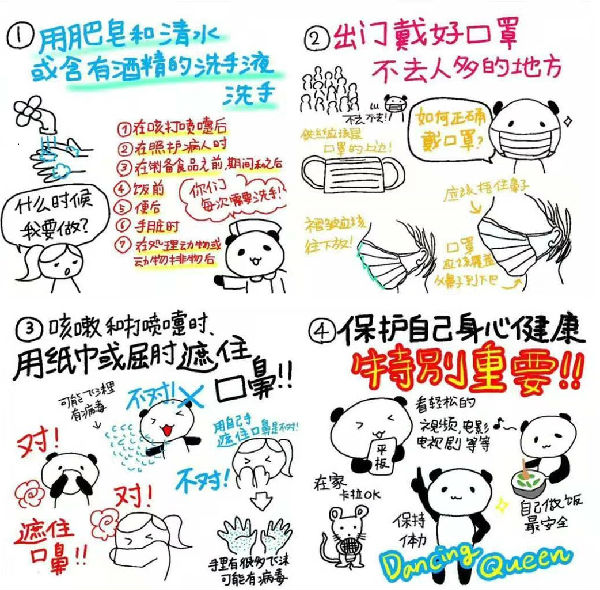 ① 用肥皂和清水
或含有酒精的洗手液
洗手
① 在咳打喷嚏后
② 在照护病人时
③ 在制备食品之前,期间和之后
④ 饭前
⑤ 便后
⑥ 手脏时
⑦ 在处理动物或
动物排物后
你们
每次需要洗手!
什么时候
我要做?
② 出门戴好口罩
不去人多的地方
不去不去!!
如何正确
戴口罩?
铁丝应该是
口罩的上边!
褶皱应该
往下放!
应该捂住鼻子
口罩
应该覆盖
从鼻子到下巴
③ 咳嗽和打喷嚏时、
用纸巾或屈肘遮住
口鼻!!
可能飞沫里
有病毒
不对!
用自己手
遮住口鼻是不对!
对!
不对!
对!
遮住
口鼻!!
手里有很多飞沫
可能有病毒
④ 保护自己身心健康
特别重要!!
看轻松的
视频,电影
电视剧等等
平板
在家
卡拉OK
保持
体力
自己做饭
最安全
Dancing Queen